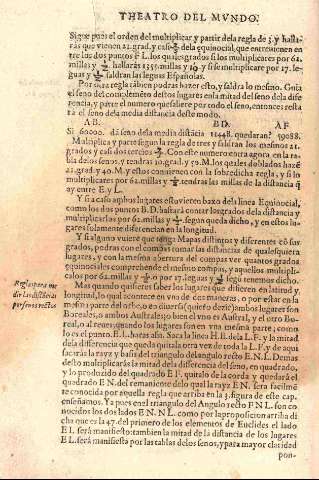 THEATRO DEL MVNDO.
Sigue pues el orden del multiplicar y partir dela regla de 3. y halla-
ras que vienen 21. grad. y casi dela equinocial, que entreuienen en
tre los dos puntos E L. los quales grados si los multiplicares por 62.
millas y ½. hallarás 1355. millas y . y si se multiplicare por 17. le-
guas y ½. saldran las leguas Españolas.
Por otra regla tãbien podras hazer esto, y saldra lo mismo. Guia
el seno del complemẽto destos lugares enla mitad del seno dela dife
rencia, y parte el numero que saliere por todo el seno; entonces resta
rá el seno dela media distancia deste modo.
A B. B D. A F.
Si 60000. dá seno dela media distãcia 11448. quedaran? 59088.
Multiplica y parte segun la regla de tres y saldran los mesmos 21.
grados y casi dos tercios. Con este numero entra agora en la ra-
bla delos senos. y tendras 10. grad. y 50. M. los quales doblados hazẽ
21. grad. y 40. M. y estos conuienen con la sobredicha regla, y si lo
multiplicares por 62. millas y ½. tendras las millas de la distancia q̃
ay entre E. y L.
Y si a caso ambos lugares estuuieren baxo dela linea Equinocial,
como los dos puntos B D. bastará contar los grados dela distancia y
multiplicarlos por 62. millas y ½. segun queda dicho, y en estos lu
gares solamente diferencian en la longitud.
Y si alguno viere que tengo Mapas distintos y diferentes cõ sus
grados, podras con el compas tomar las distancias de qualesquiera
lugares, y con la mesma abertura del compas ver quantos grados
equinociales comprehende el mesmo compas, y aquellos multipli-
calos por 62. millas y ½. o por 17. leguas y ½. segũ tenemos dicho.
Mas quando quisieres saber los lugares que difieren en latitud y
longitud, lo qual acontece en vno de dos maneras, o por estar en la
mesma parte
Boreales, o ambos Australes; o bien el vno es Austral, y el otro Bo-
real, o al reues; quando los lugares son en vna mesma parte; como
lo es el punto. E L. haras assi. Saca la linea H E. dela L F. y lo mitad
dela diferencia que queda quitala otra vez de toda la L F. y de aqui
sacirás la raya y basis del triangulo del angulo recto E. N. L. Demas
desto multiplicarás la mitad dela diferencia del seno, en quadrado,
y lo produzido del quadrado E F. quitalo de la corda y quedará el
quadrado E N. del remaniente delo qual la raya E N. será facilmẽ
te conocida por aquella regla que arriba en la 3. figura de este cap.
enseñamos. Ya pues en el triangulo del Angulo recto F N L. son co
nocidos los dos lados E N. N L. como por la proposicion arriba di
cha que es la 47. del primero de los elementos de Euclides el lado
E L será manifiesto: tambien la mitad de la distancia de los lugares
E L. será manifiesta por las tablas delos senos, y para mayor claridad
pon-
Regla pera me
dir las distãcias
por senos rectos